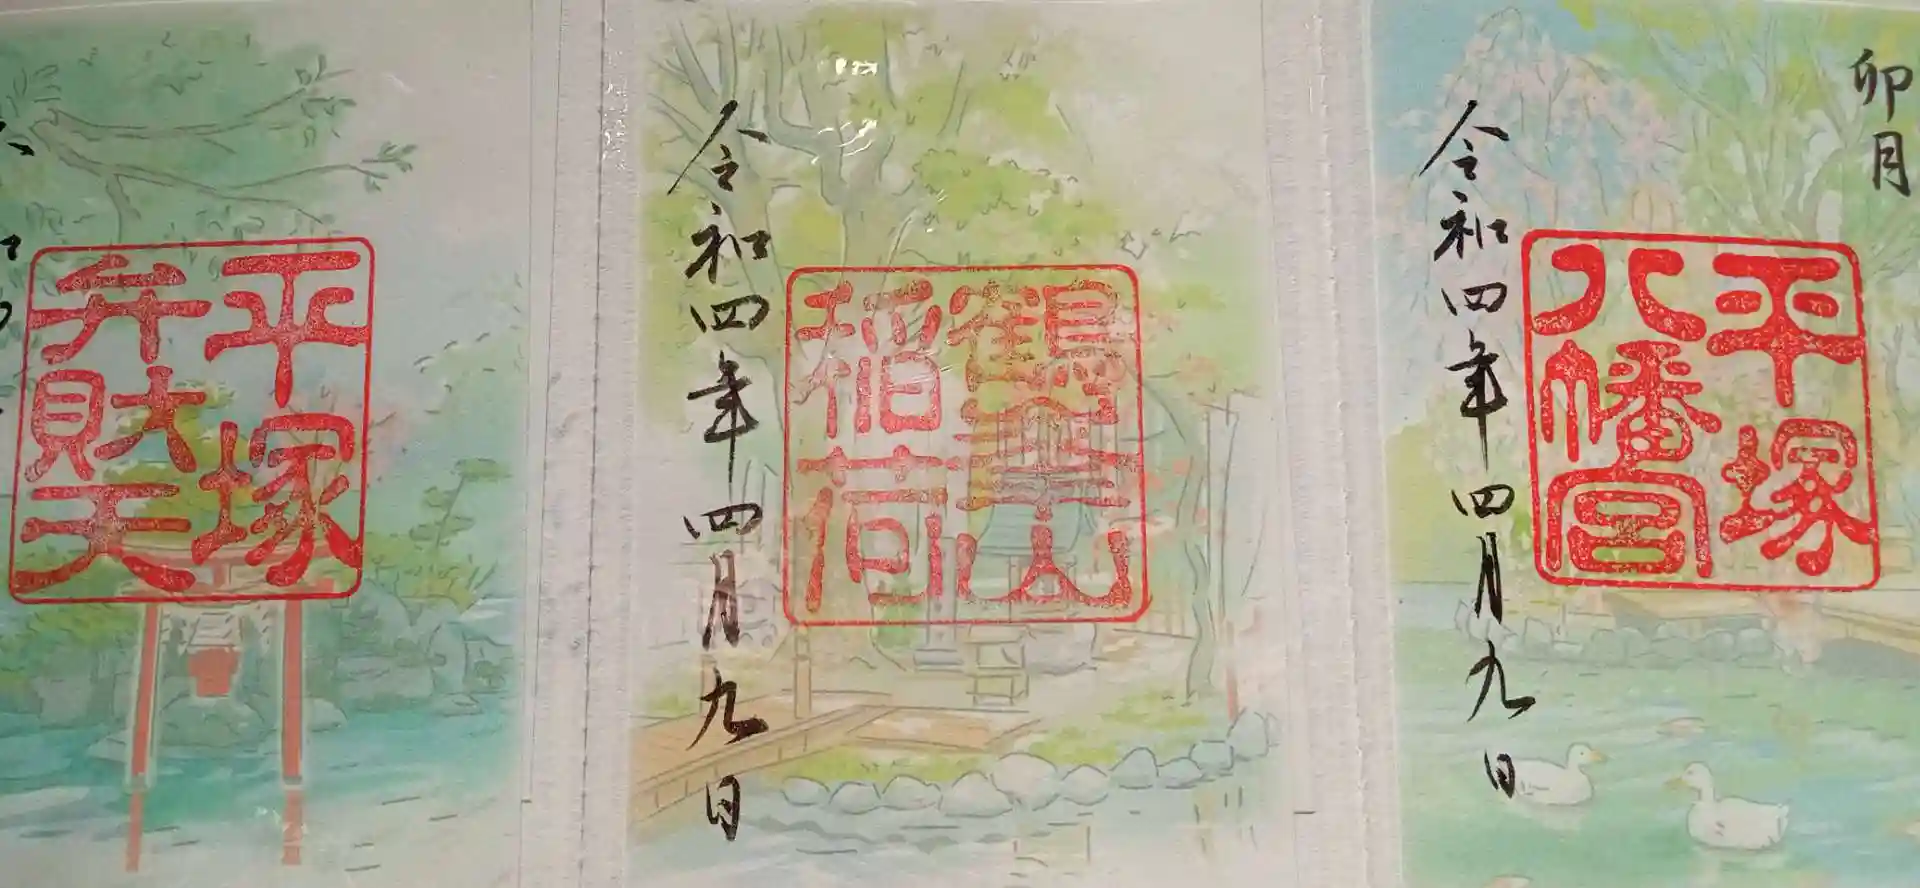 卯月
平塚
八幡宮
令和四年四月九日
鶴峯山
稲荷
令和四年四月九日
平塚
弁財天